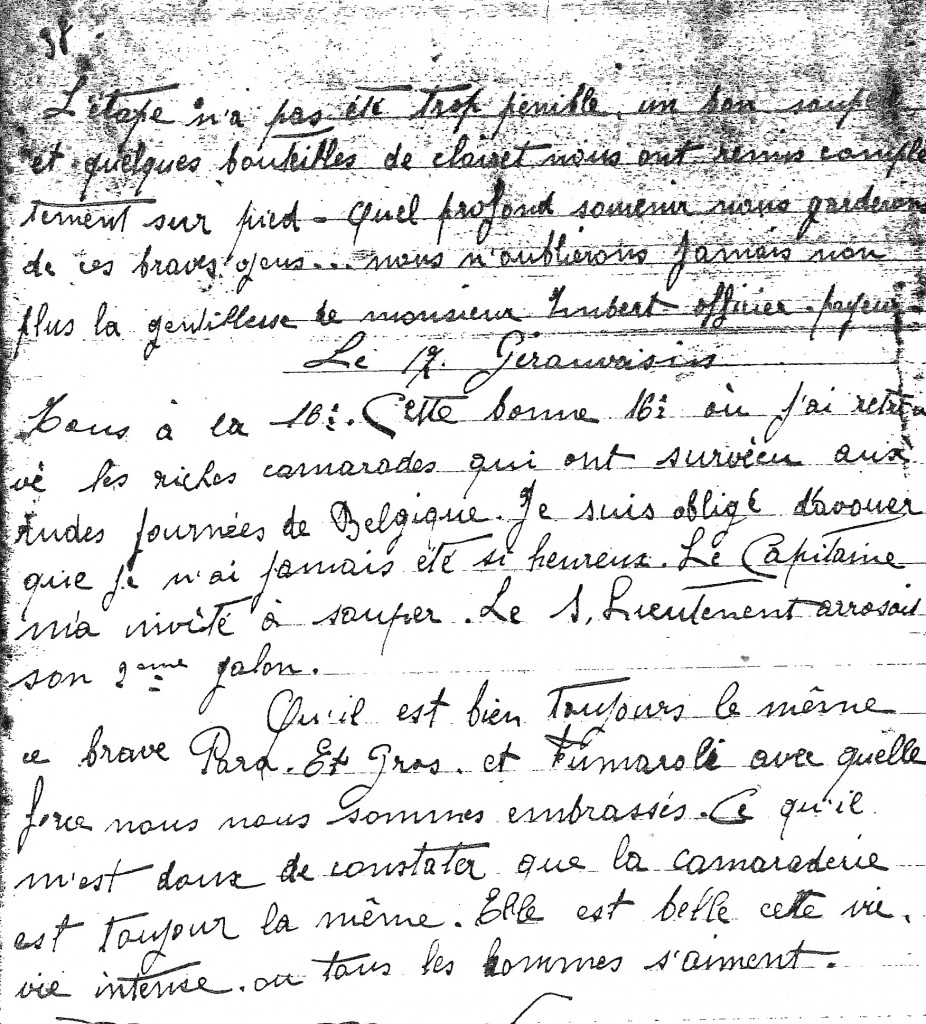 L'étape n'a pas été trop pénible, un bon souper
et quelques bouteilles de clairet nous ont remis complè
tement sur pied - Quel profond souvenir nous garderons
de ces braves gens... nous n'oublierons jamais non
plus la gentillesse de monsieur Imbert officier payeur
Le 17. Gerauvaisins
Tous à la 16è. Cette bonne 16è où j'ai retrou
vé les riches camarades qui ont survécu aux
rudes journées de Belgique. Je suis obligé d'avouer
que je n'ai jamais été si heureux. Le Capitaine
m'a invité à souper. Le S. Lieutenent arrosait
son 2ème galon.
Qu'il est bien toujours le même
ce brave Para. Et Gros. et Fumaroli avec quelle
force nous nous sommes embrassés. Ce qu'il
m'est doux de constater que la camaraderie
est toujour la même. Elle est belle cette vie.
vie intense. ou tous les hommes s'aiment.